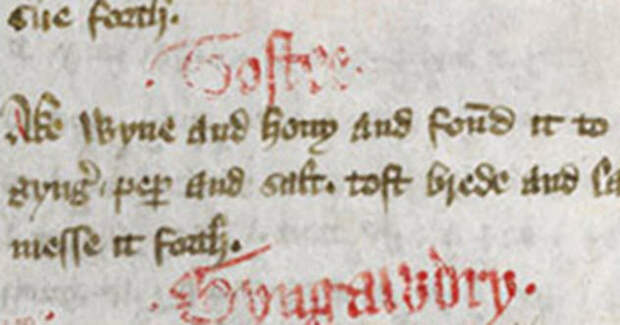 sue forth.
Tostee.
Ake wyne and hony and found it to
gyng peper and salt. tost brede and la
messe it forth.
Gyngawdry.